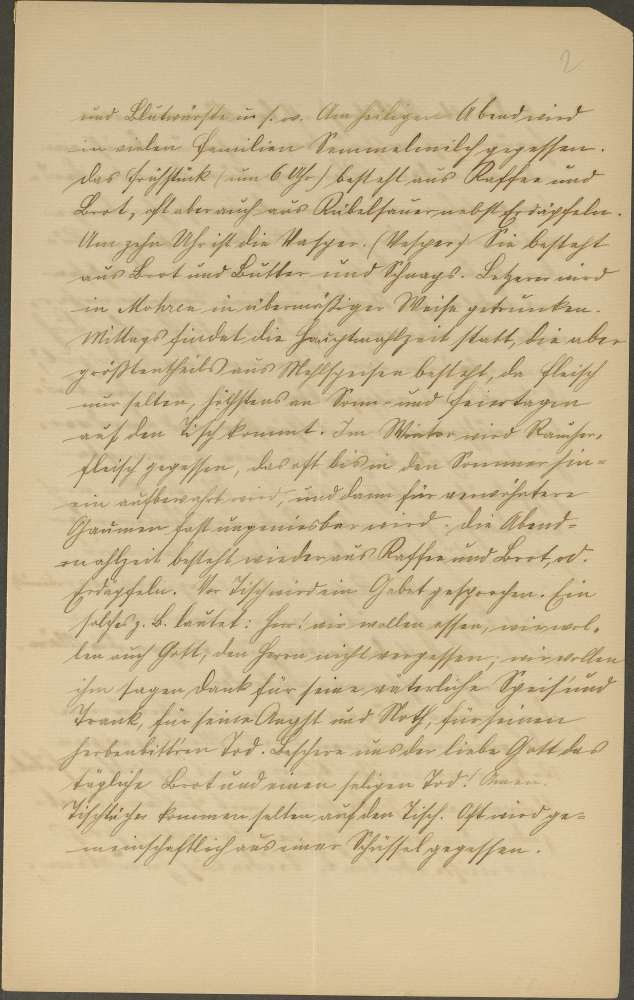 2
und Blutwürste u. s. w. Am heiligen Abend wird
in vielen Familien Semmelmilch gegessen.
Das Frühstück (um 6 Uhr) besteht aus Kaffee und
Brot, oft aber auch aus Kübelsauer nebst Erdäpfeln.
Um zehn Uhr ist die Vasper. (Vesper) Sie besteht
aus Brot und Butter und Schnaps. Letzerer wird
in Mohren in übermäßiger Weise getrunken.
Mittags findet die Hauptmahlzeit statt, die aber
größtentheils aus Mehlspeisen besteht, da Fleisch
nur selten, höchstens an Sonn- und Feiertagen
auf den Tisch kommt. Im Winter wird Raucher-
fleisch gegessen, das oft bis in den Sommer hin-
ein aufbewahrt wird, und dann für verwöhntere
Gaumen fast ungeniesbar wird. Die Abend-
mahlzeit besteht wieder aus Kaffee und Brot, od.
Erdäpfeln. Vor Tisch wird ein Gebet gesprochen. Ein
solches z. B. lautet: Herr! wir wollen essen, wir wol-
len auch Gott, den Herrn nicht vergessen; wir wollen
ihm sagen Dank für seine väterliche Speis' und
Trank, für seine Angst und Noth, für seinen
herbenbittren Tod. Beschere uns der liebe Gott das
tägliche Brot und einen seligen Tod! Amen.
Tischtücher kommen selten auf den Tisch. Oft wird ge-
meinschaftlich aus einer Schüssel gegessen.